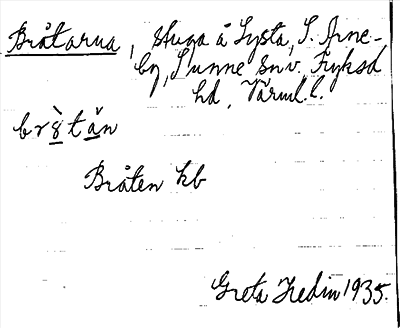 Bråtarna, stuga å Lysta, S. Arne-
by, Sunne snv. Fryksd
hd, Värml. l.
br8̀tǎn
Bråten kb
Greta Hedin 1935.